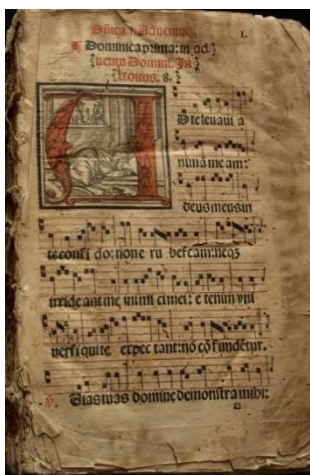 I.
Dominica prima: in ad
uentu Domini. In
troitus. 8.
A
D te leuaui a
nimā meam:
deus meus in
te confi do: non e ru bescam: neqȝ
irrideant me inimi ci mei: e tenim vni
uersi qui te expec tant: nō cōfundētur.
Vias tuas domine demonstra mihi: